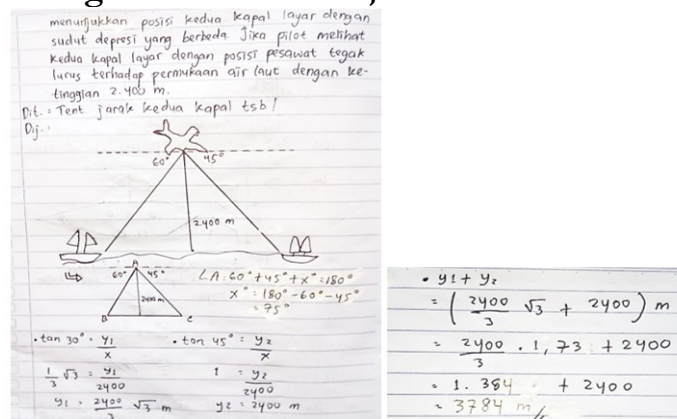 menunjukkan posisi kedua kapal layar dengan
sudut depresi yang berbeda. Jika pilot melihat
kedua kapal layar dengan posisi pesawat tegak
lurus terhadap permukaan air laut dengan ke-
tinggian 2.400 m.
Dit.: Tent. jarak kedua kapal tsb!
Dij.:
60° 45°
2400 m
A
60° 45°
2400 m
B C
∠A: 60° + 45° + x° = 180°
x° = 180° - 60° - 45°
= 75°
• tan 30° = y1/x
1/3 √3 = y1/2400
y1 = 2400/3 √3 m
• tan 45° = y2/x
1 = y2/2400
y2 = 2400 m
• y1 + y2
= (2400/3 √3 + 2400) m
= 2400/3 . 1,73 + 2400
= 1.384 + 2400
= 3784 m